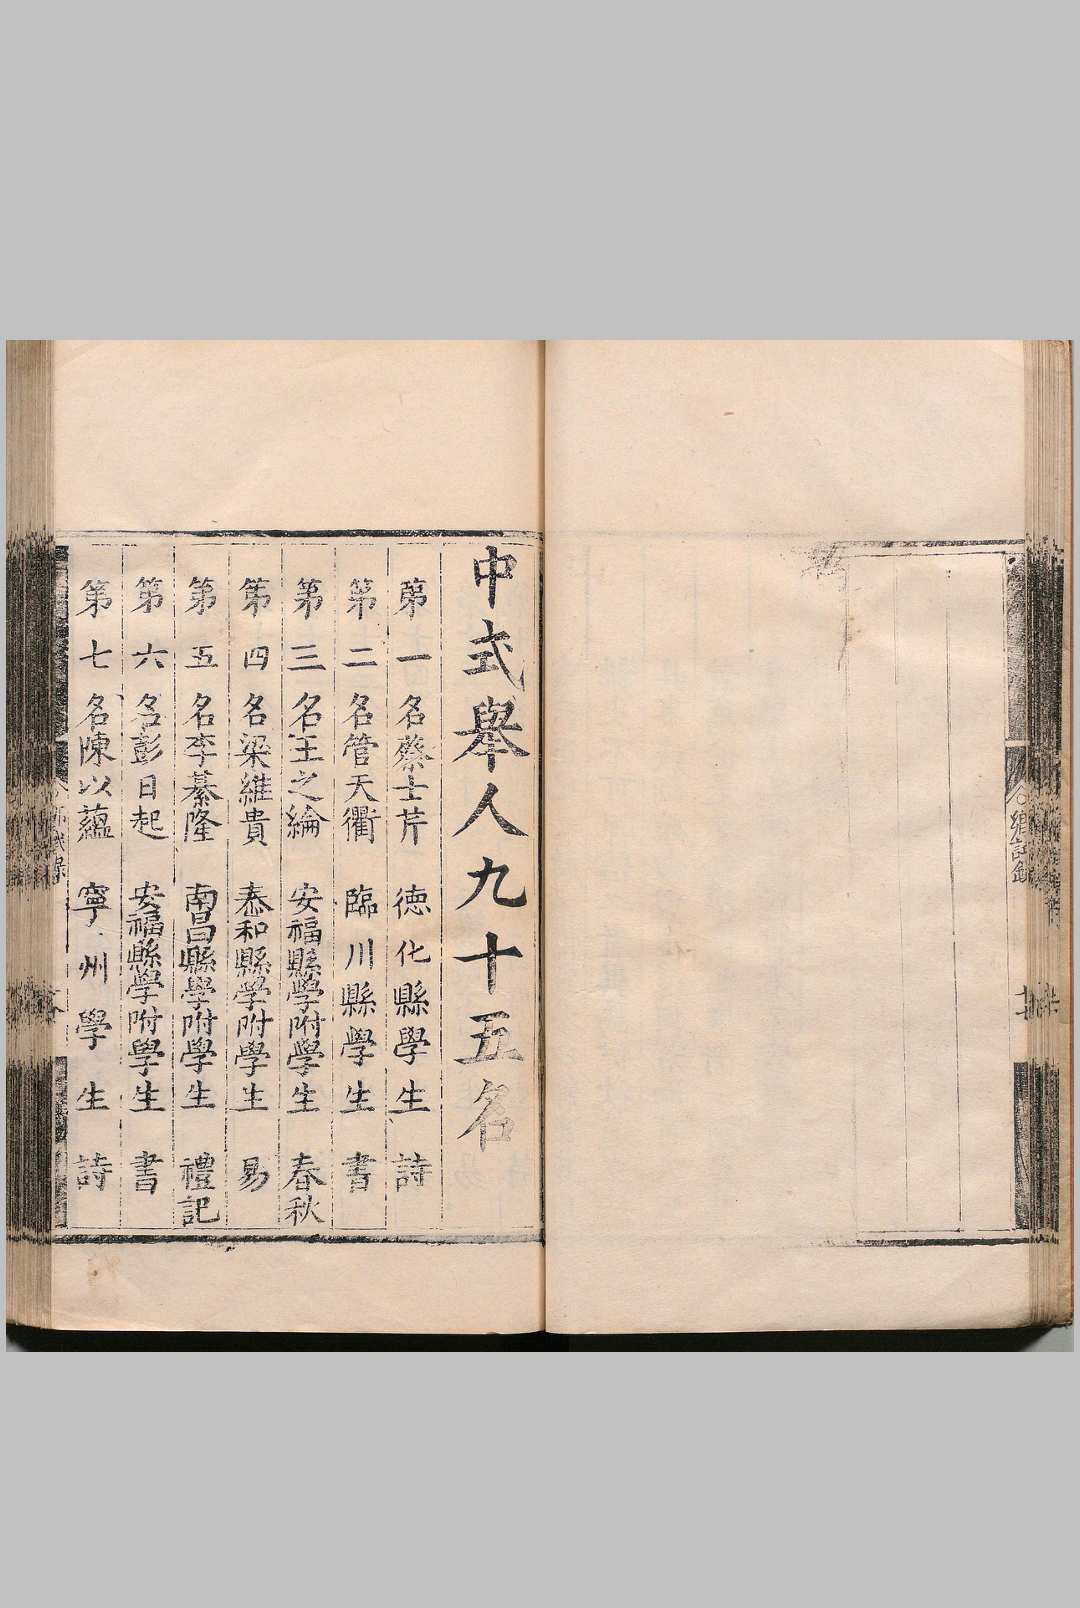 鄉試錄
中式舉人九十五名
第一名蔡士芹 德化縣學生 詩
第二名管天衢 臨川縣學生 書
第三名王之綸 安福縣學附學生 春秋
第四名梁維貴 泰和縣學附學生 易
第五名李綦隆 南昌縣學附學生 禮記
第六名彭日起 安福縣學附學生 書
第七名陳以蘊 寧州學生 詩